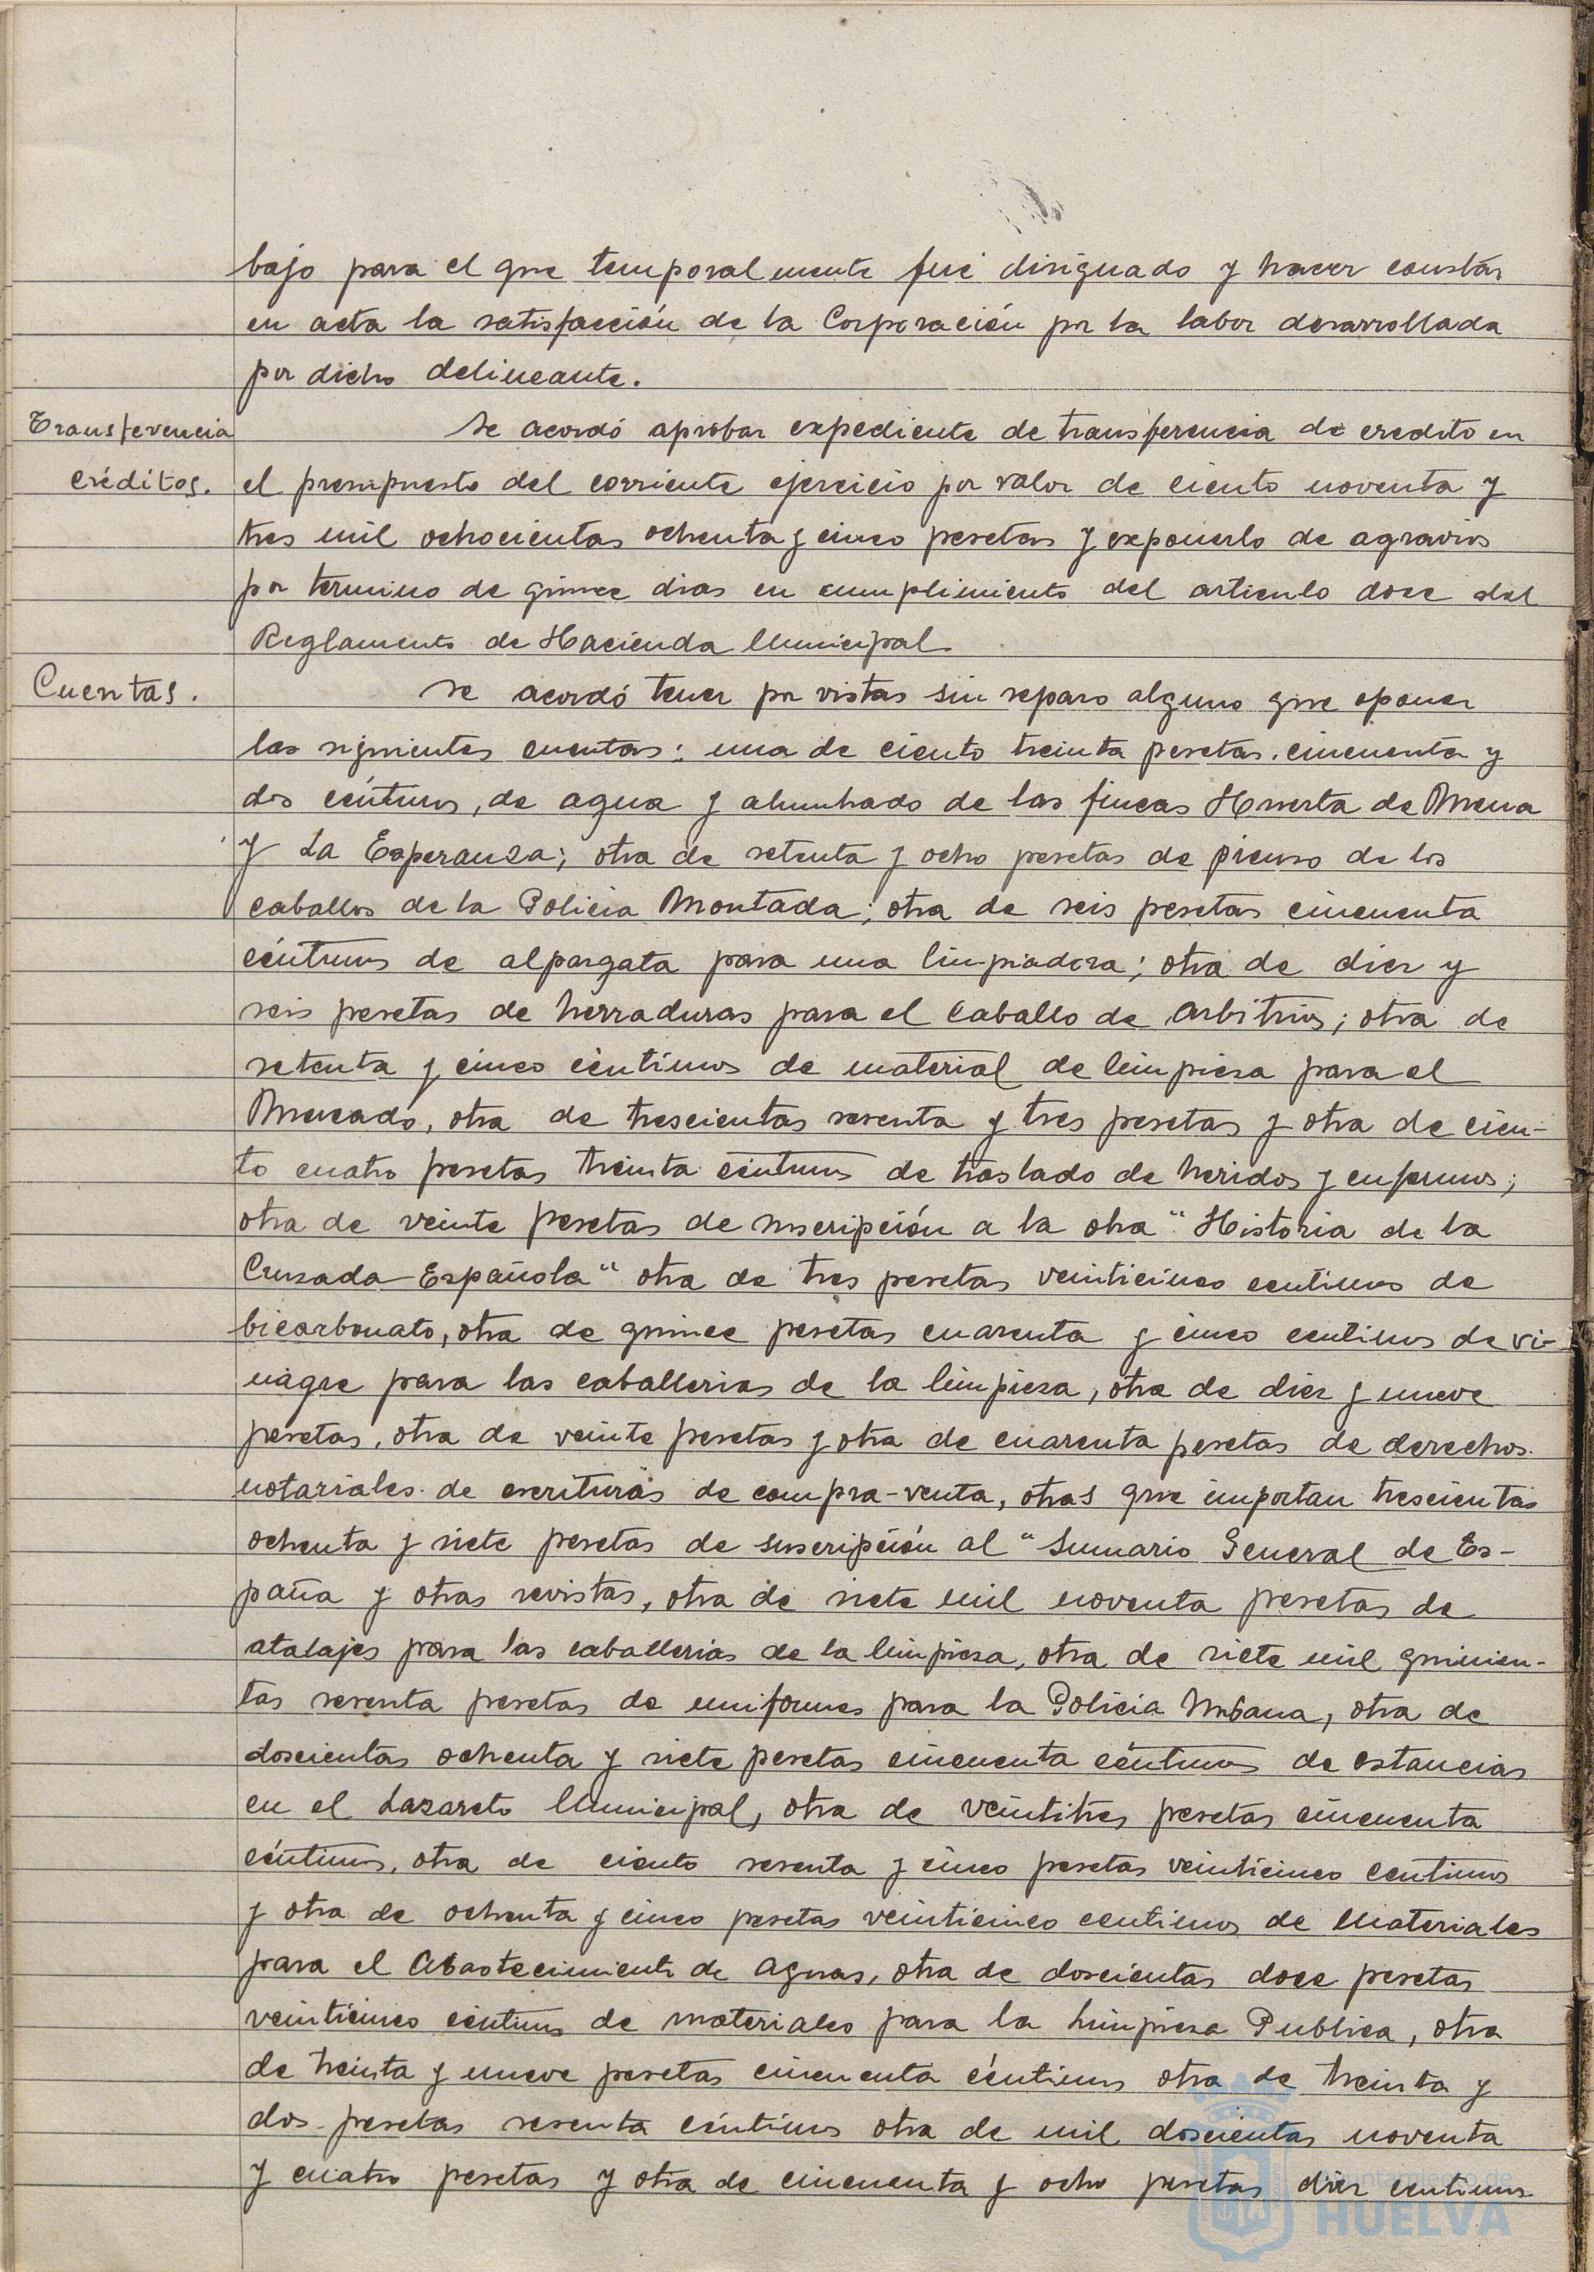 bajo para el que temporalmente fué disignado y hacer constar
en acta la satisfacción de la Corporación por la labor desarrollada
por dicho delineante.
Transferencia
créditos.
Se acordó aprobar expediente de transferencia de credito en
el presupuesto del corriente ejercicio por valor de ciento noventa y
tres mil ochocientas ochenta y cinco pesetas y exponerlo de agravios
por termino de quince dias en cumplimiento del articulo doce del
Reglamento de Hacienda Municipal
Cuentas.
Se acordó tener por vistas sin reparo alguno que oponer
las siguientes cuentas: una de ciento treinta pesetas cincuenta y
dos céntimos, de agua y alumbrado de las fincas Huerta de Mena
y La Esperanza; otra de setenta y ocho pesetas de pienso de los
caballos de la Policia Montada; otra de seis pesetas cincuenta
céntimos de alpargata para una limpiadora; otra de diez y
seis pesetas de herraduras para el Caballo de Arbitrios; otra de
setenta y cinco céntimos de material de limpieza para el
Mercado, otra de trescientas sesenta y tres pesetas y otra de cien-
to cuatro pesetas treinta céntimos de traslado de heridos y enfermos;
otra de veinte pesetas de suscripción a la obra "Historia de la
Cruzada Española" otra de tres pesetas veinticinco centimos de
bicarbonato, otra de quince pesetas cuarenta y cinco centimos de vi-
nagre para las caballerias de la limpieza, otra de diez y nueve
pesetas, otra de veinte pesetas y otra de cuarenta pesetas de derechos
notariales de escrituras de compra-venta, otras que importan trescientas
ochenta y siete pesetas de suscripción al "Sumario General de Es-
paña y otras revistas, otra de siete mil noventa pesetas de
atalajes para las caballerias de la limpieza, otra de siete mil quinien-
tas sesenta pesetas de uniformes para la Policia Urbana, otra de
doscientas ochenta y siete pesetas cincuenta céntimos de estancias
en el Lazareto Municipal, otra de veintitres pesetas cincuenta
céntimos, otra de ciento sesenta y cinco pesetas veinticinco centimos
y otra de ochenta y cinco pesetas veinticinco centimos de materiales
para el Abastecimiento de Aguas, otra de doscientas doce pesetas
veinticinco céntimos de materiales para la Limpieza Publica, otra
de treinta y nueve pesetas cincuenta céntimos otra de treinta y
dos pesetas sesenta céntimos otra de mil doscientas noventa
y cuatro pesetas y otra de cincuenta y ocho pesetas diez centimos
Ayuntamiento de
HUELVA